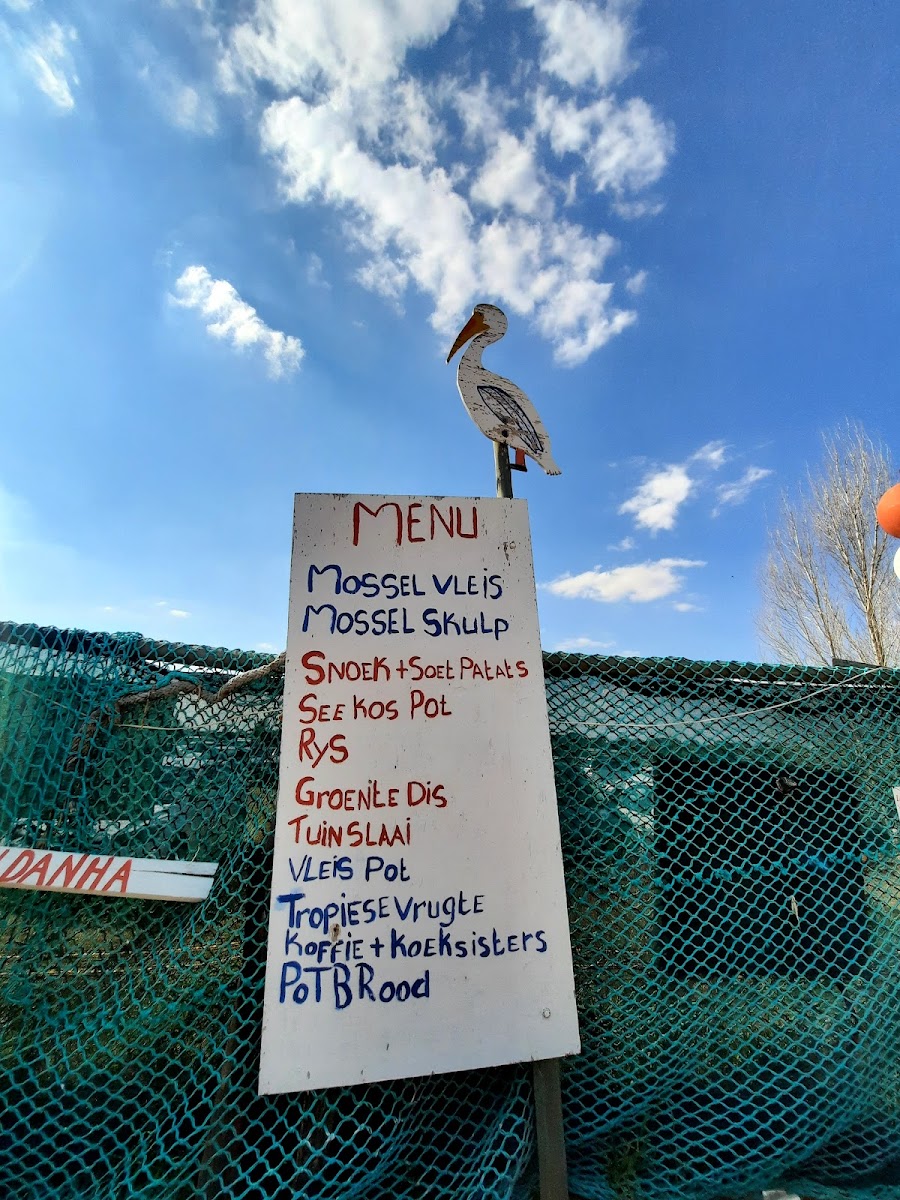 MENU
MOSSEL VLEIS
MOSSEL SKULP
SNOEK + SOET PATATS
SEE KOS POT
RYS
GROENTE DIS
TUINSLAAI
VLEIS POT
TROPIESE VRUGTE
KOFFIE + KOEKSISTERS
POTBROOD
DANHA